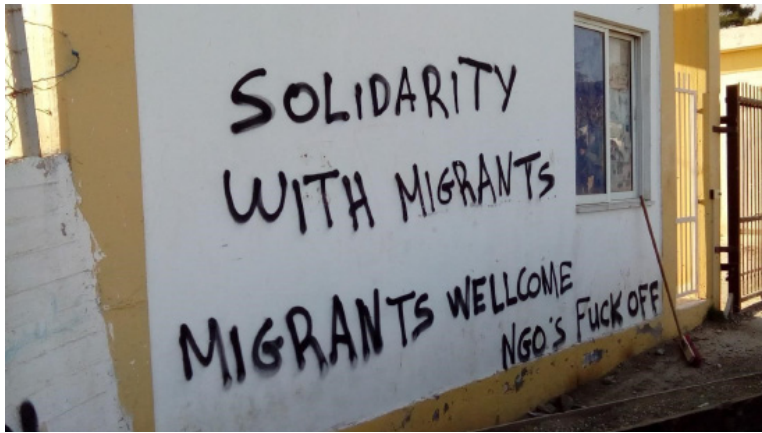 SOLIDARITY
WITH MIGRANTS
MIGRANTS WELLCOME
NGO'S FUCK OFF